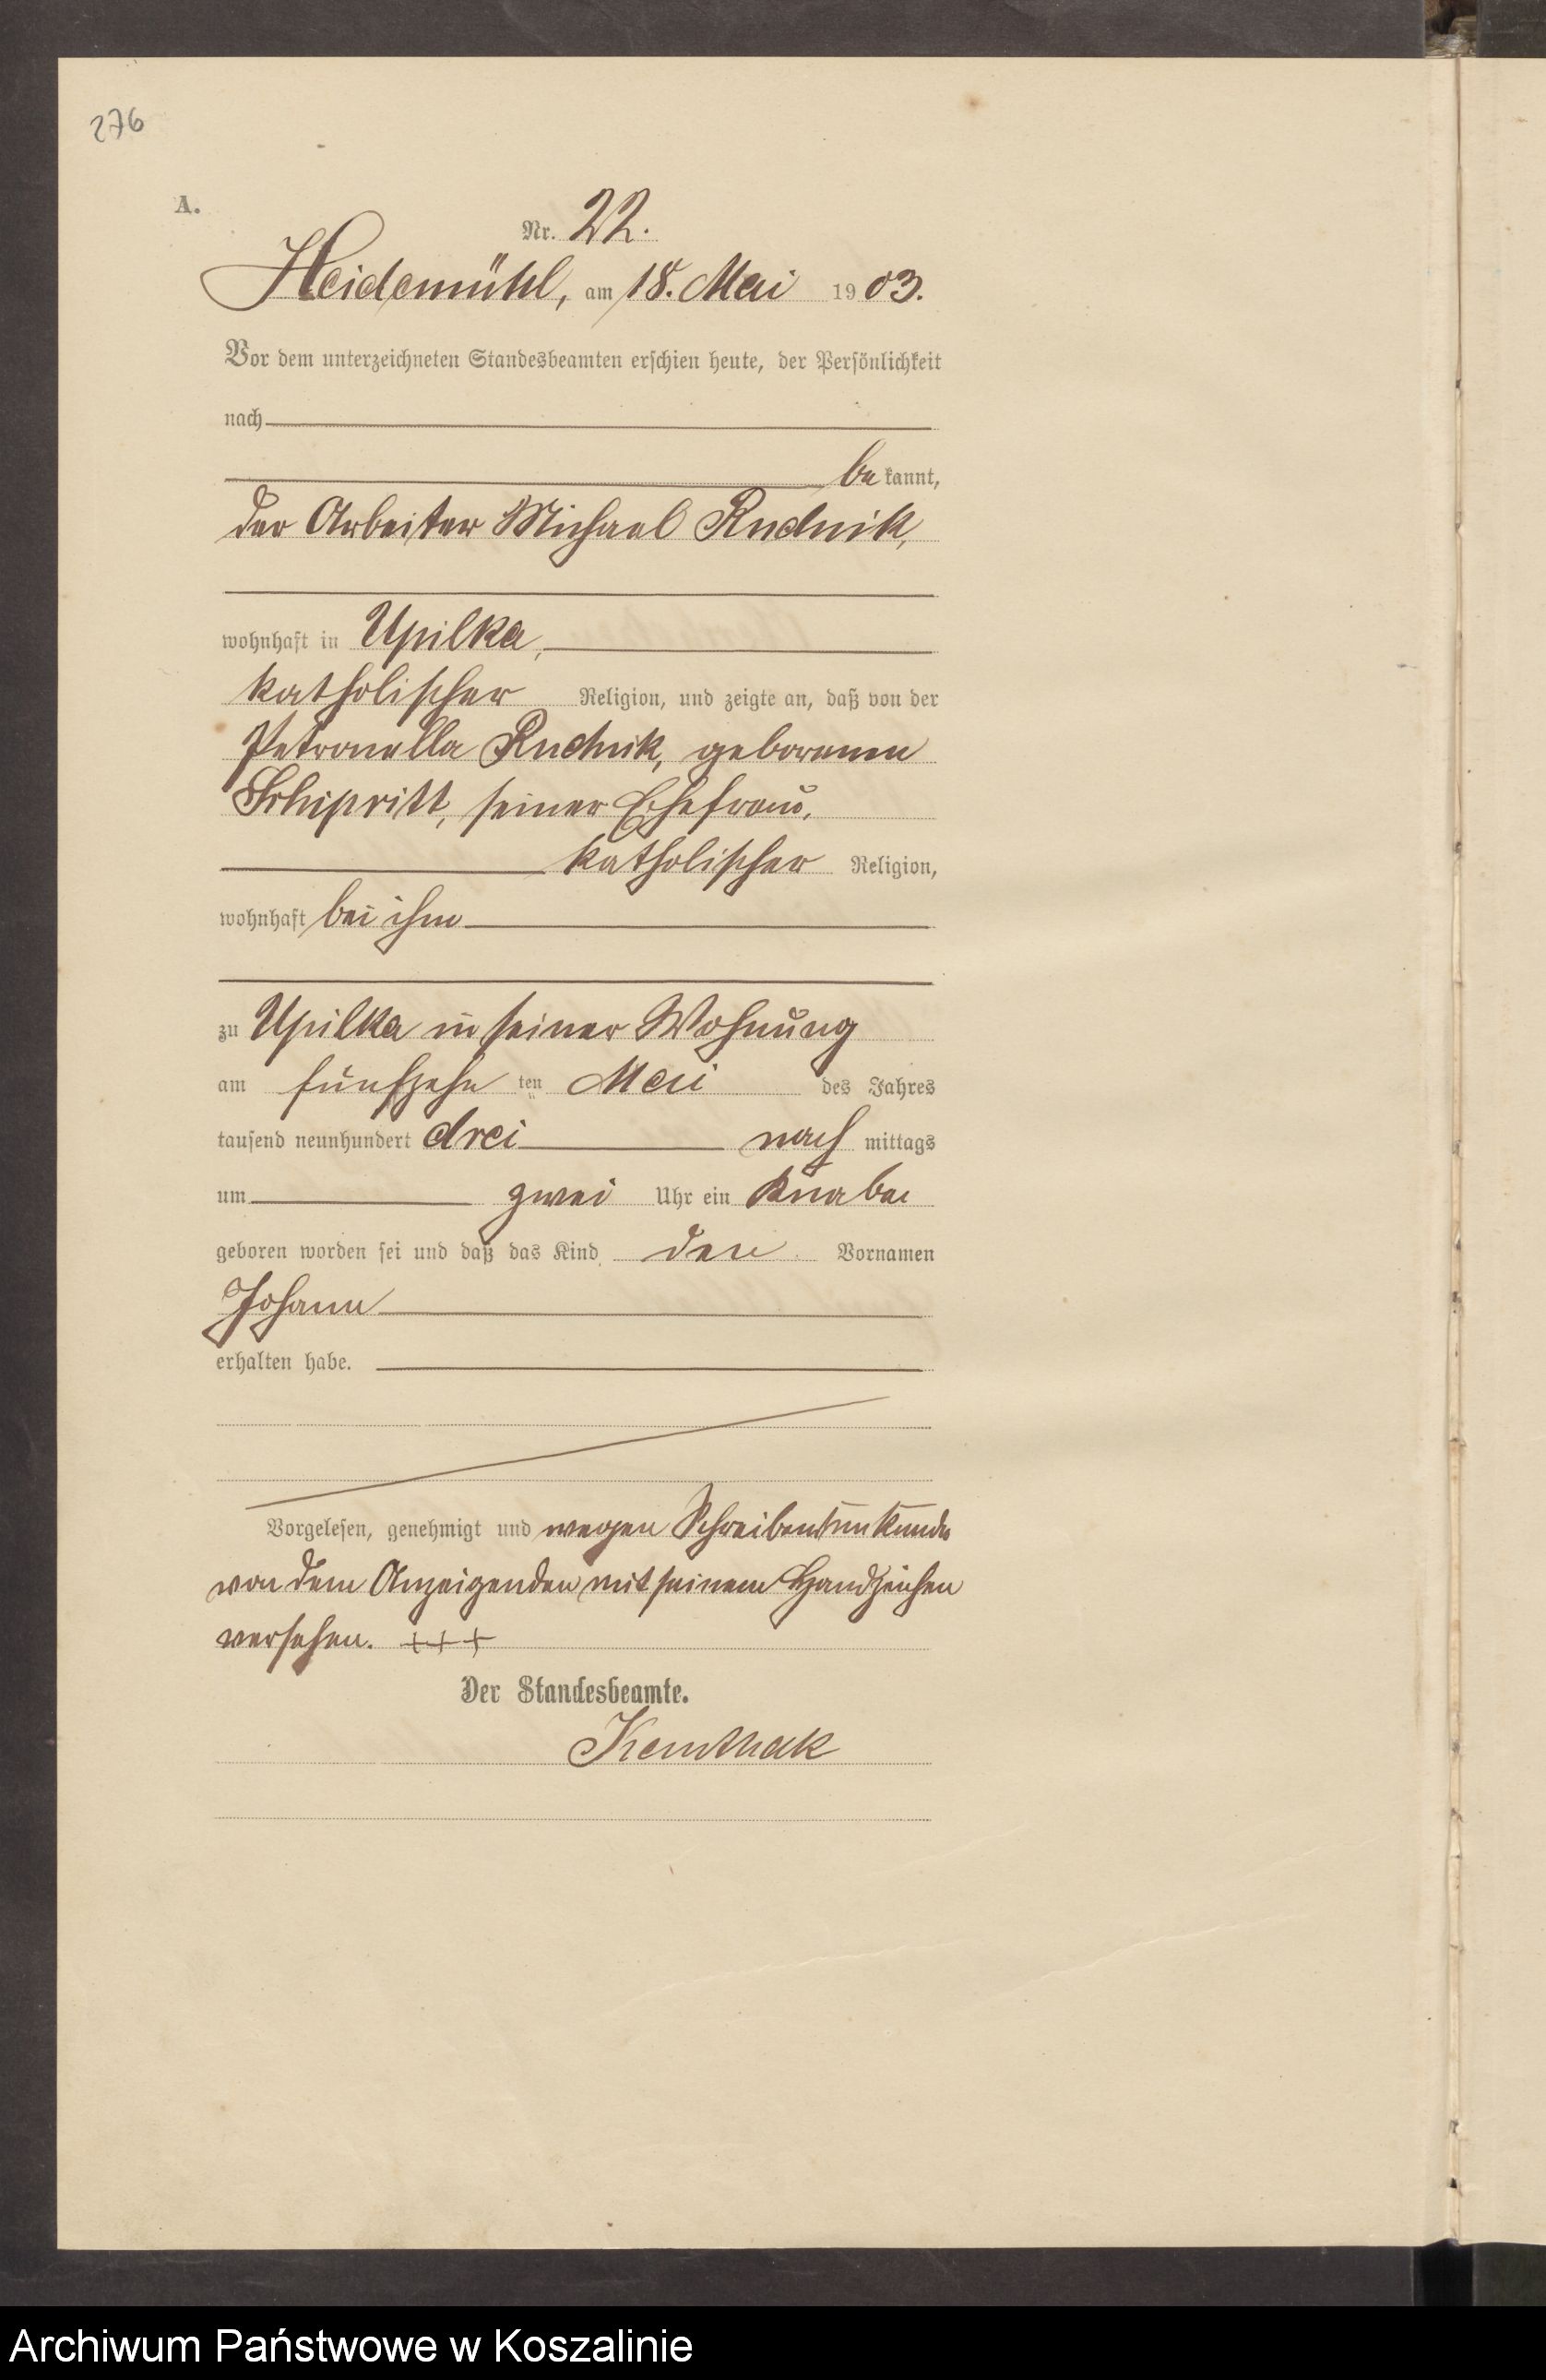 276
A.
Nr. 22.
Heidemühl, am 18. Mai 1903.
Vor dem unterzeichneten Standesbeamten erschien heute, der Persönlichkeit
nach
be kannt,
der Arbeiter Michael Rudnik,
wohnhaft in Upilka,
katholischer Religion, und zeigte an, daß von der
Petronella Rudnik, geborenen
Schipritt, seiner Ehefrau,
katholischer Religion,
wohnhaft bei ihm
zu Upilka in seiner Wohnung
am fünfzehn ten Mai des Jahres
tausend neunhundert drei nach mittags
um zwei Uhr ein Knabe
geboren worden sei und daß das Kind den Vornamen
Johann
erhalten habe.
Vorgelesen, genehmigt und wegen Schreibensunkunde
von dem Anzeigenden mit seinem Handzeichen
versehen. +++
Der Standesbeamte.
Archiwum Państwowe w Koszalinie